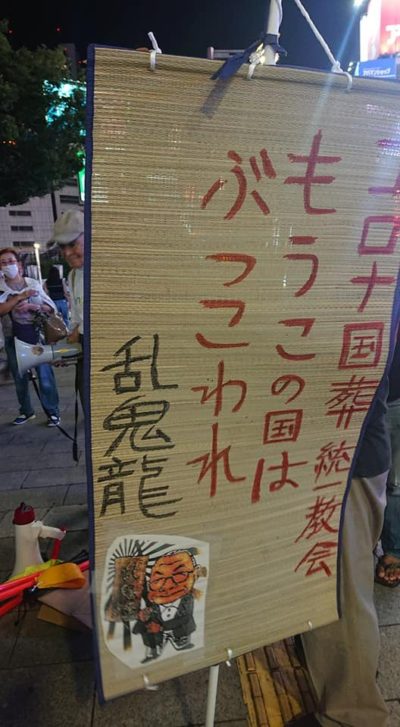 コロナ国葬統一教会
もうこの国は
ぶっこわれ
乱鬼龍